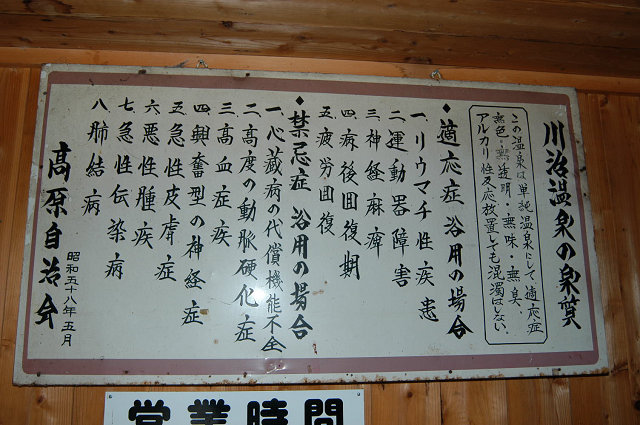 川治温泉の泉質
この温泉は単純温泉にして適応症
無色・無透明・無味・無臭、
アルカリ性反応放置しても混濁はしない。
◆適応症 浴用の場合
一、リウマチ性疾患
二、運動器障害
三、神経麻痺
四、病後回復期
五、疲労回復
◆禁忌症 浴用の場合
一、心蔵病の代償機能不全
二、高度の動脈硬化症
三、高血症疾
四、興奮型の神経症
五、急性皮膚症
六、悪性腫疾
七、急性伝染病
八、肺結病
高原自治会
昭和五十八年五月
営業時間